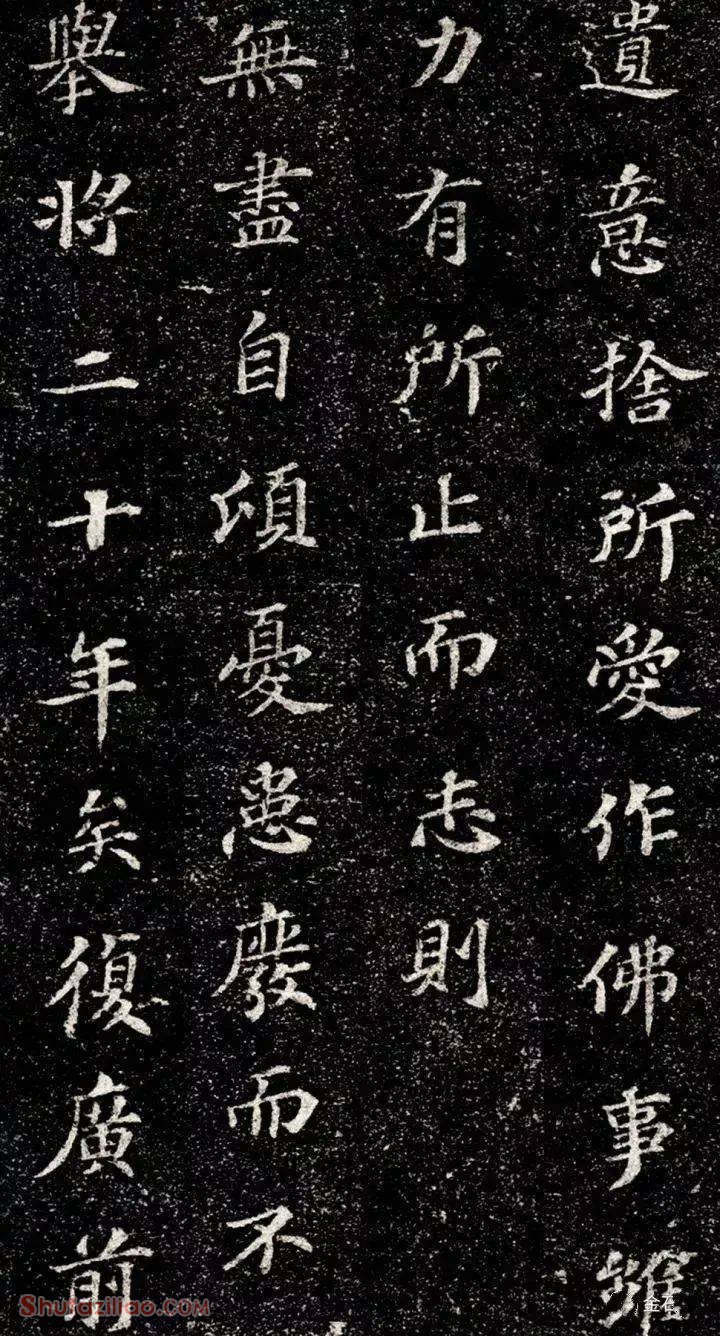 遺意捨所愛作佛事雖
力有所止而志則
無盡自頃憂患廢而不
舉將二十年矣復廣前
Shufaziliao.COM
金石